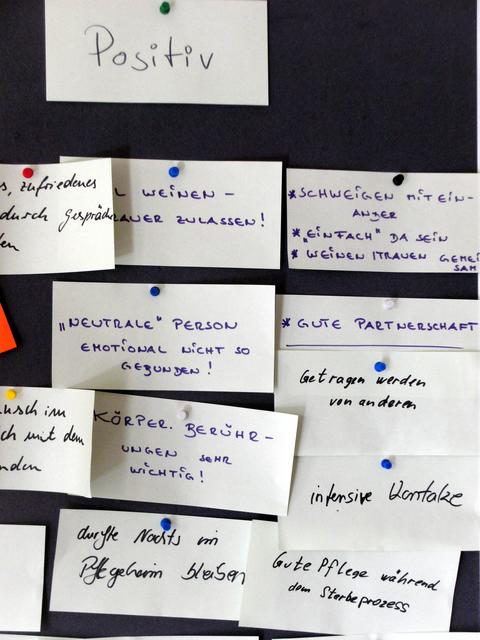 Positiv
s, zufriedenes
durch gespräche
L WEINEN -
AUER ZULASSEN!
* SCHWEIGEN MITEIN-
ANDER
* "EINFACH" DA SEIN
* WEINEN / TRAUEN GEMEI
SAM
"NEUTRALE" PERSON
EMOTIONAL NICHT SO
GEBUNDEN!
* GUTE PARTNERSCHAFT
Getragen werden
von anderen
unsch im
ch mit dem
nden
KÖRPER. BERÜHR-
UNGEN SEHR
WICHTIG!
intensive Kontakte
durfte Nachts im
Pflegeheim bleiben
Gute Pflege während
dem Sterbeprozess